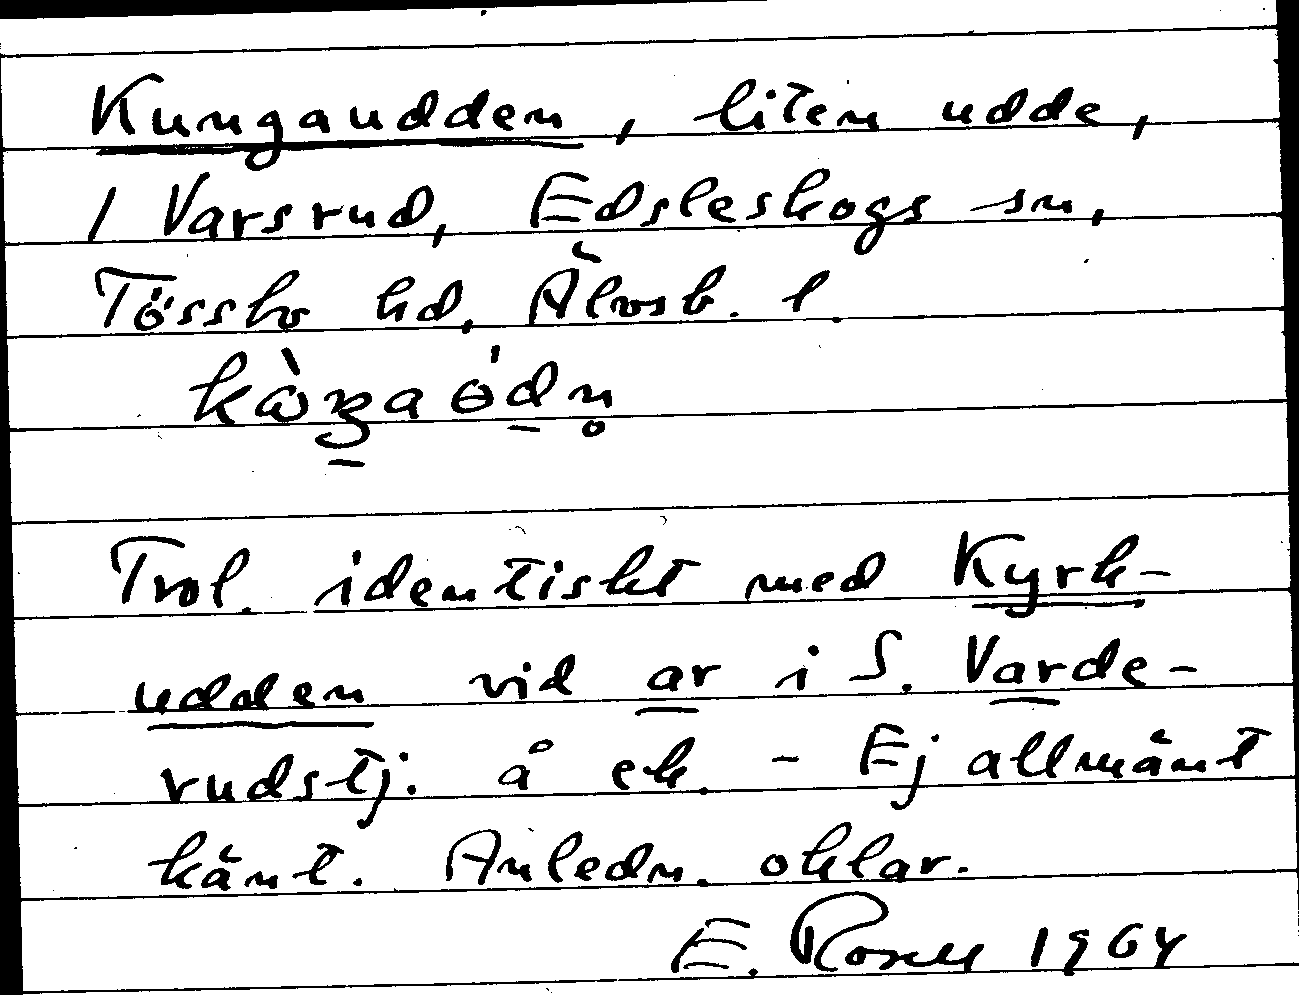 Kungaudden, liten udde,
1 Varsrud, Edsleskogs sn,
Tössbo hd, Älvsb. l.
Trol. identiskt med Kyrk-
udden vid ar i S. Varde-
rudstj. å ek. - Ej allmänt
känt. Anledn. oklar.
E. Rosell 1964